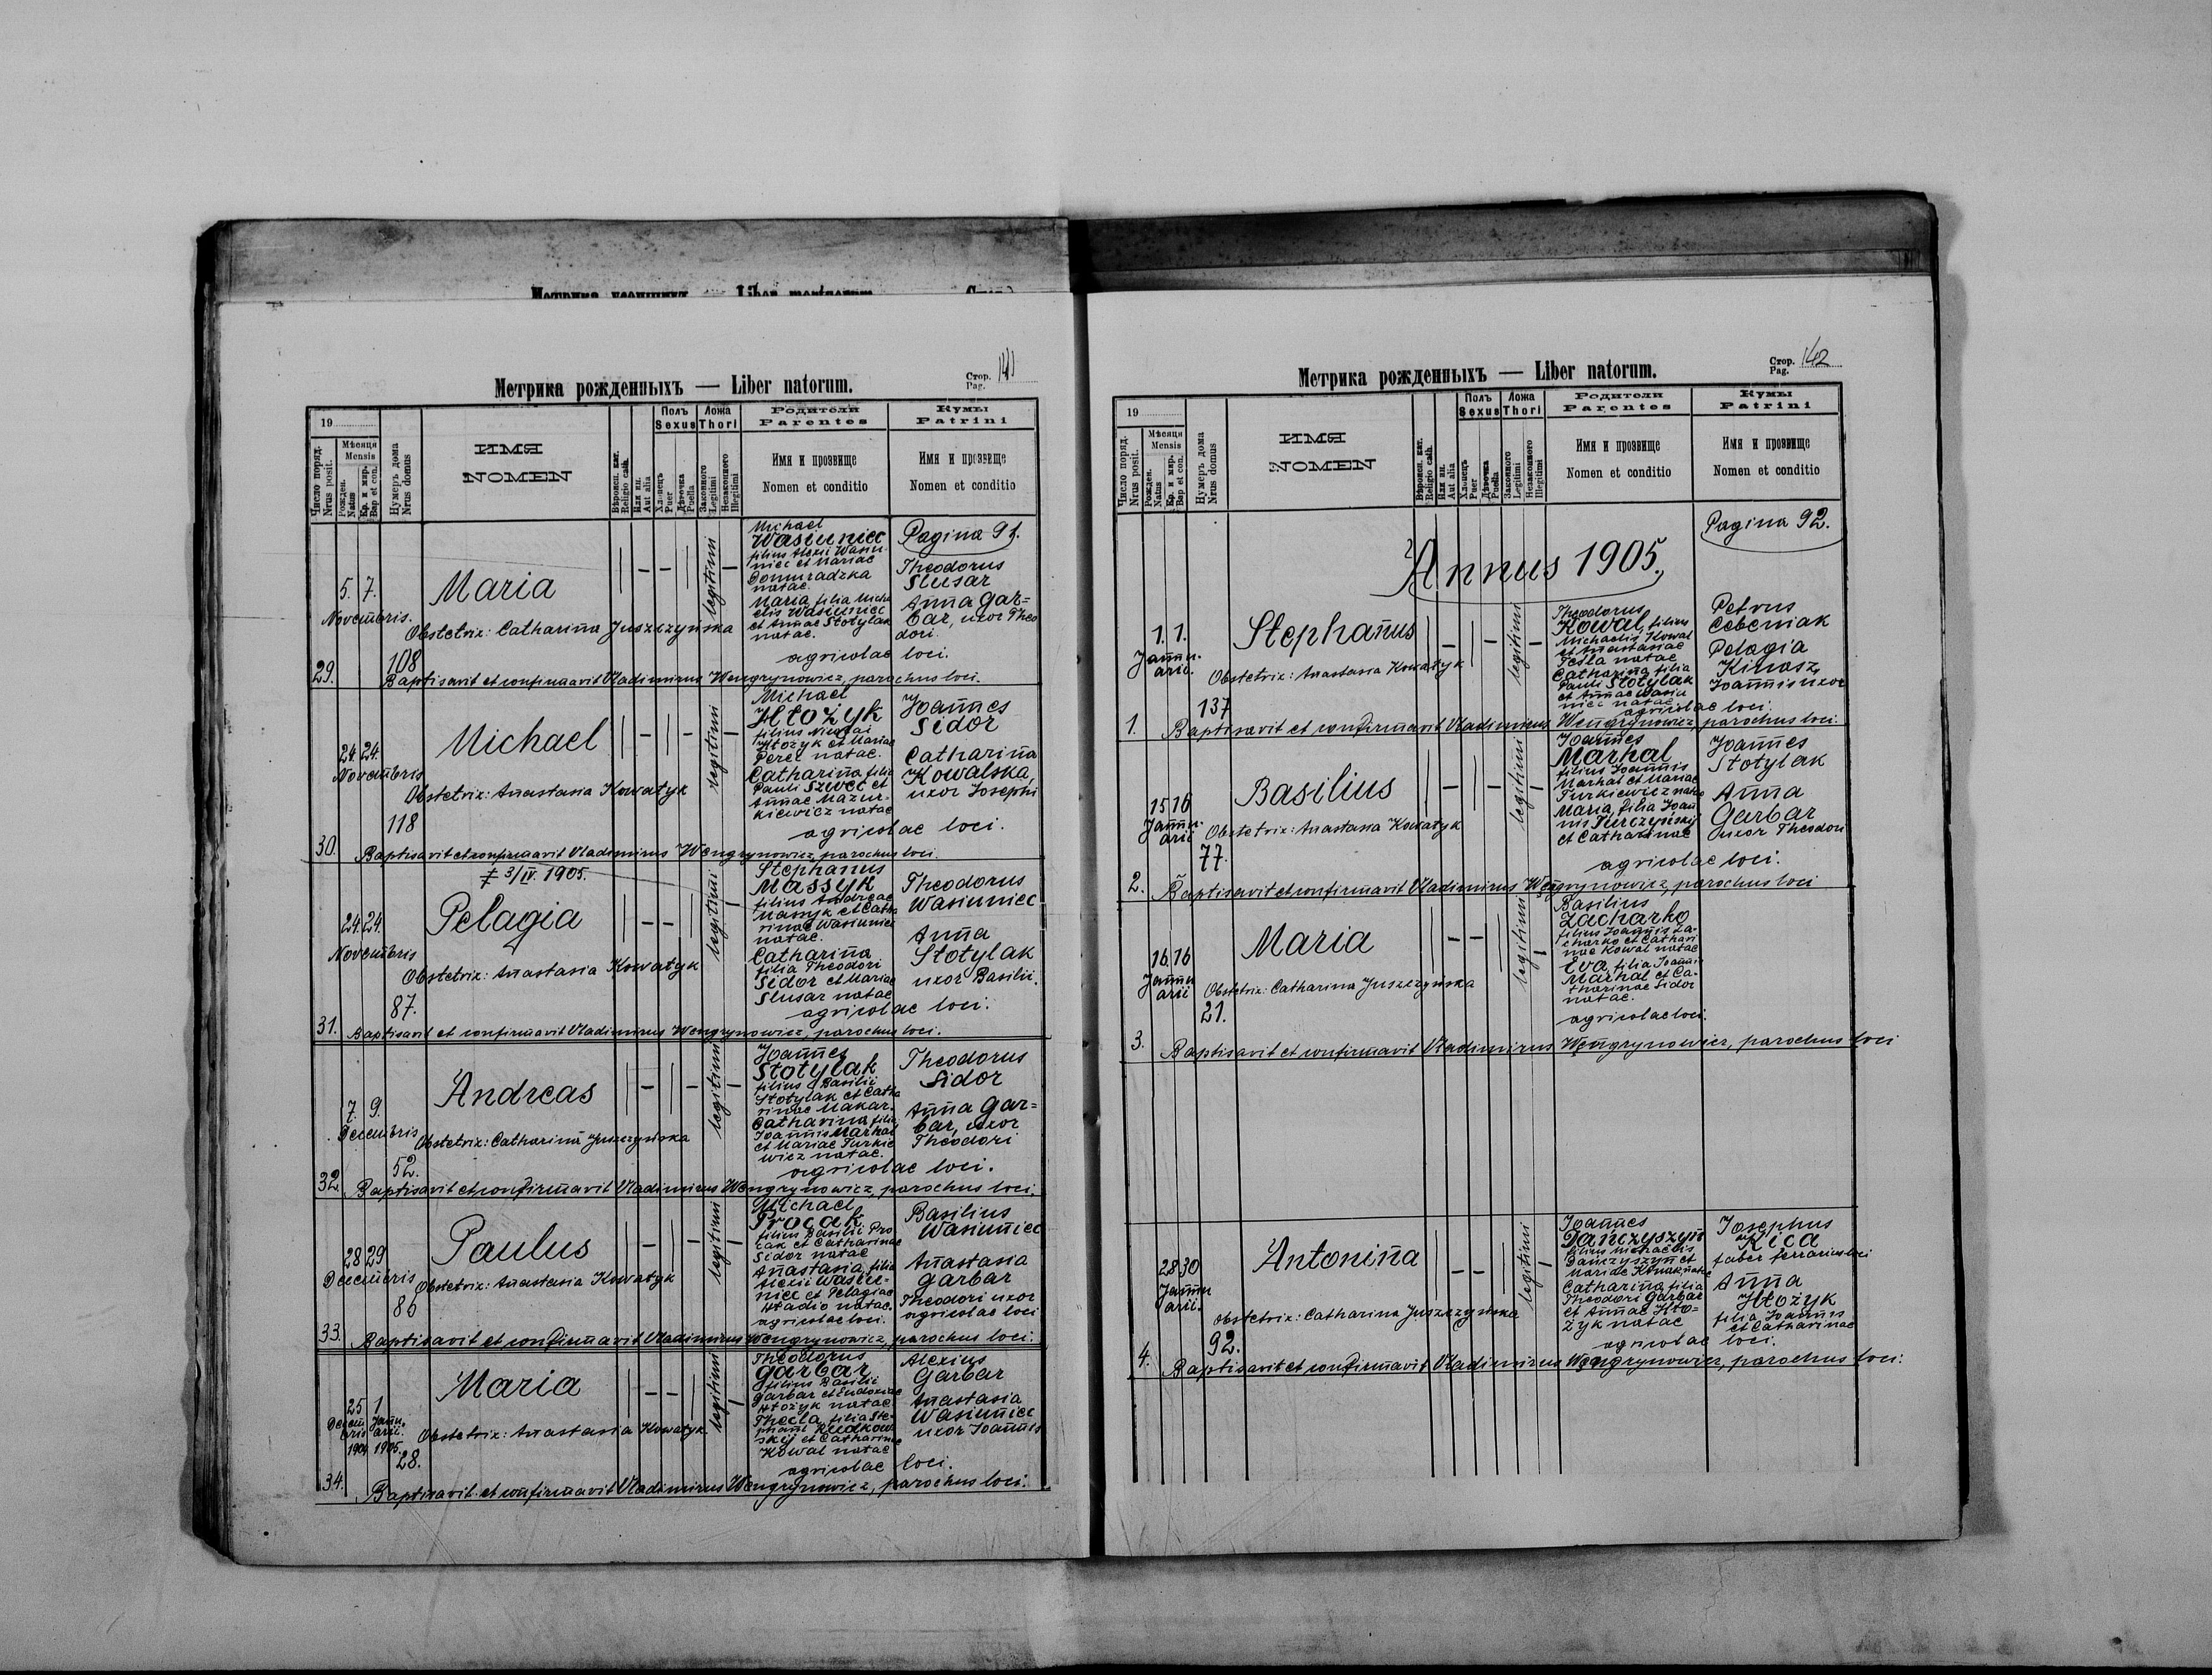 Метрика усопших — Liber mortuorum
Стор. Pag. 141
Метрика рожденныхъ — Liber natorum.
19
Число поряд. Nrus posit.
Мѣсяця Mensis
Рожден. Natus
Кр. и мѵр. Bap et con.
Нумеръ дома Nrus domus
ИМЯ
NOMEN
Вѣроисп. кат. Religio cath.
Или ин. Aut alia
Полъ Sexus
Хлопецъ Puer
Дѣвочка Puella
Ложа Thori
Законного Legitimi
Незаконного Illegitimi
Родители
Parentes
Имя и прозвище
Nomen et conditio
Кумы
Patrini
Имя и прозвище
Nomen et conditio
Pagina 91.
29. 5. 7. Novembris.
108
Maria
Obstetrix: Catharina Juszczyńska
legitimi
Michael
Wasiuniec
filius Alexii Wasiu-
niec et Mariae
Domaradzka
natae.
Maria filia Micha
elis Wasiuniec
et Annae Stotylak
natae.
Theodorus
Slusar
Anna Gar=
bar, uxor Theo
dori.
agricolae loci.
Baptisavit et confirmavit Vladimirus Wengrynowicz, parochus loci.
30. 24. 24. Novembris
118
Michael
Obstetrix: Anastasia Kowatyk
legitimi
Michael
Htożyk
filius Nicolai
Htożyk et Mariae
Perel natae.
Catharina filia
Pauli Szwec et
Annae Mazur-
kiewicz natae
Joannes
Sidor
Catharina
Kowalska,
uxor Josephi
agricolae loci.
Baptisavit et confirmavit Vladimirus Wengrynowicz, parochus loci.
31. 24. 24. Novembris
87.
‡ 3/IV. 1905.
Pelagia
Obstetrix: Anastasia Kowatyk
legitimi
Stephanus
Massyk
filius Andreae
Massyk et Catha
rinae Wasiuniec
natae.
Catharina
filia Theodori
Sidor et Mariae
Slusar natae
Theodorus
Wasiuniec
Anna
Stotylak
uxor Basilii.
agricolae loci.
Baptisavit et confirmavit Vladimirus Wengrynowicz, parochus loci.
32. 7. 9. Decembris
52.
Andreas
Obstetrix: Catharina Juszczyńska
legitimi
Joannes
Stotylak
filius Basilii
Stotylak et Catha
rinae Makar.
Catharina filia
Joannis Markal
et Mariae Turkie
wicz natae.
Theodorus
Sidor
Anna Gar=
bar, uxor
Theodori
agricolae loci.
Baptisavit et confirmavit Vladimirus Wengrynowicz, parochus loci.
33. 28 29 Decembris
86
Paulus
Obstetrix: Anastasia Kowatyk
legitimi
Michael
Procak
filius Basilii Pro
cak et Catharinae
Sidor natae
Anastasia, filia
Alexii Wasiu-
niec et Pelagiae
Htadio natae.
agricolae loci.
Basilius
Wasiuniec
Anastasia
Garbar
Theodori uxor
agricolae loci
Baptisavit et confirmavit Vladimirus Wengrynowicz, parochus loci.
34. 25 Decembris 1904 1 Januarii. 1905.
28.
Maria
Obstetrix: Anastasia Kowatyk.
legitimi
Theodorus
Garbar
filius Basilii
Garbar et Eudoxiae
Htożyk natae.
Thecla, filia Ste-
phani
et Catharinae
Kowal natae
Alexius
Garbar
Anastasia
Wasiuniec
uxor Joannis
agricolae loci.
Baptisavit et confirmavit Vladimirus Wengrynowicz, parochus loci.
Стор. Pag. 142
Метрика рожденныхъ — Liber natorum.
19
Число поряд. Nrus posit.
Мѣсяця Mensis
Рожден. Natus
Кр. и мѵр. Bap et con.
Нумеръ дома Nrus domus
ИМЯ
NOMEN
Вѣроисп. кат. Religio cath.
Или ин. Aut alia
Полъ Sexus
Хлопецъ Puer
Дѣвочка Puella
Ложа Thori
Законного Legitimi
Незаконного Illegitimi
Родители
Parentes
Имя и прозвище
Nomen et conditio
Кумы
Patrini
Имя и прозвище
Nomen et conditio
Pagina 92.
Annus 1905.
1. 1. 1. Januarii.
137
Stephanus
Obstetrix: Anastasia Kowatyk
legitimi
Theodorus
Kowal, filius
Michaelis Kowal
et Anastasiae
Tesla natae
Catharina filia
Pauli Stotylak
et Annae Wasiu
niec natae.
Petrus
Cebeniak
Pelagia
Kinasz,
Joannis uxor
agricolae loci.
Baptisavit et confirmavit Vladimirus Wengrynowicz, parochus loci.
2. 15 16 Januarii
77.
Basilius
Obstetrix: Anastasia Kowatyk
legitimi
Joannes
Markal
filius Joannis
Markal et Mariae
Turkiewicz natae
Maria, filia Joan
nis Turczyński
et Catharinae
Joannes
Stotylak
Anna
Garbar
uxor Theodori
agricolae loci.
Baptisavit et confirmavit Vladimirus Wengrynowicz, parochus loci
3. 16 16 Januarii
21.
Maria
Obstetrix: Catharina Juszczyńska
legitimi
Basilius
Zacharko
filius Joannis Za-
charko et Cathari
nae Kowal natae
Eva, filia Joannis
Markal et Ca-
tharinae Sidor
natae.
agricolae loci.
Baptisavit et confirmavit Vladimirus Wengrynowicz, parochus loci
4. 28 30 Januarii.
92.
Antonina
Obstetrix: Catharina Juszczyńska
legitimi
Joannes
Danczyszyn
filius Michaelis
Danczyszyn et
Mariae natae
Catharina, filia
Theodori Garbar
et Annae Hto=
żyk natae
Josephus
Kica
faber ferrarius loci
Anna
Htożyk
filia Joannis
et Catharinae
agricolae loci.
Baptisavit et confirmavit Vladimirus Wengrynowicz, parochus loci.